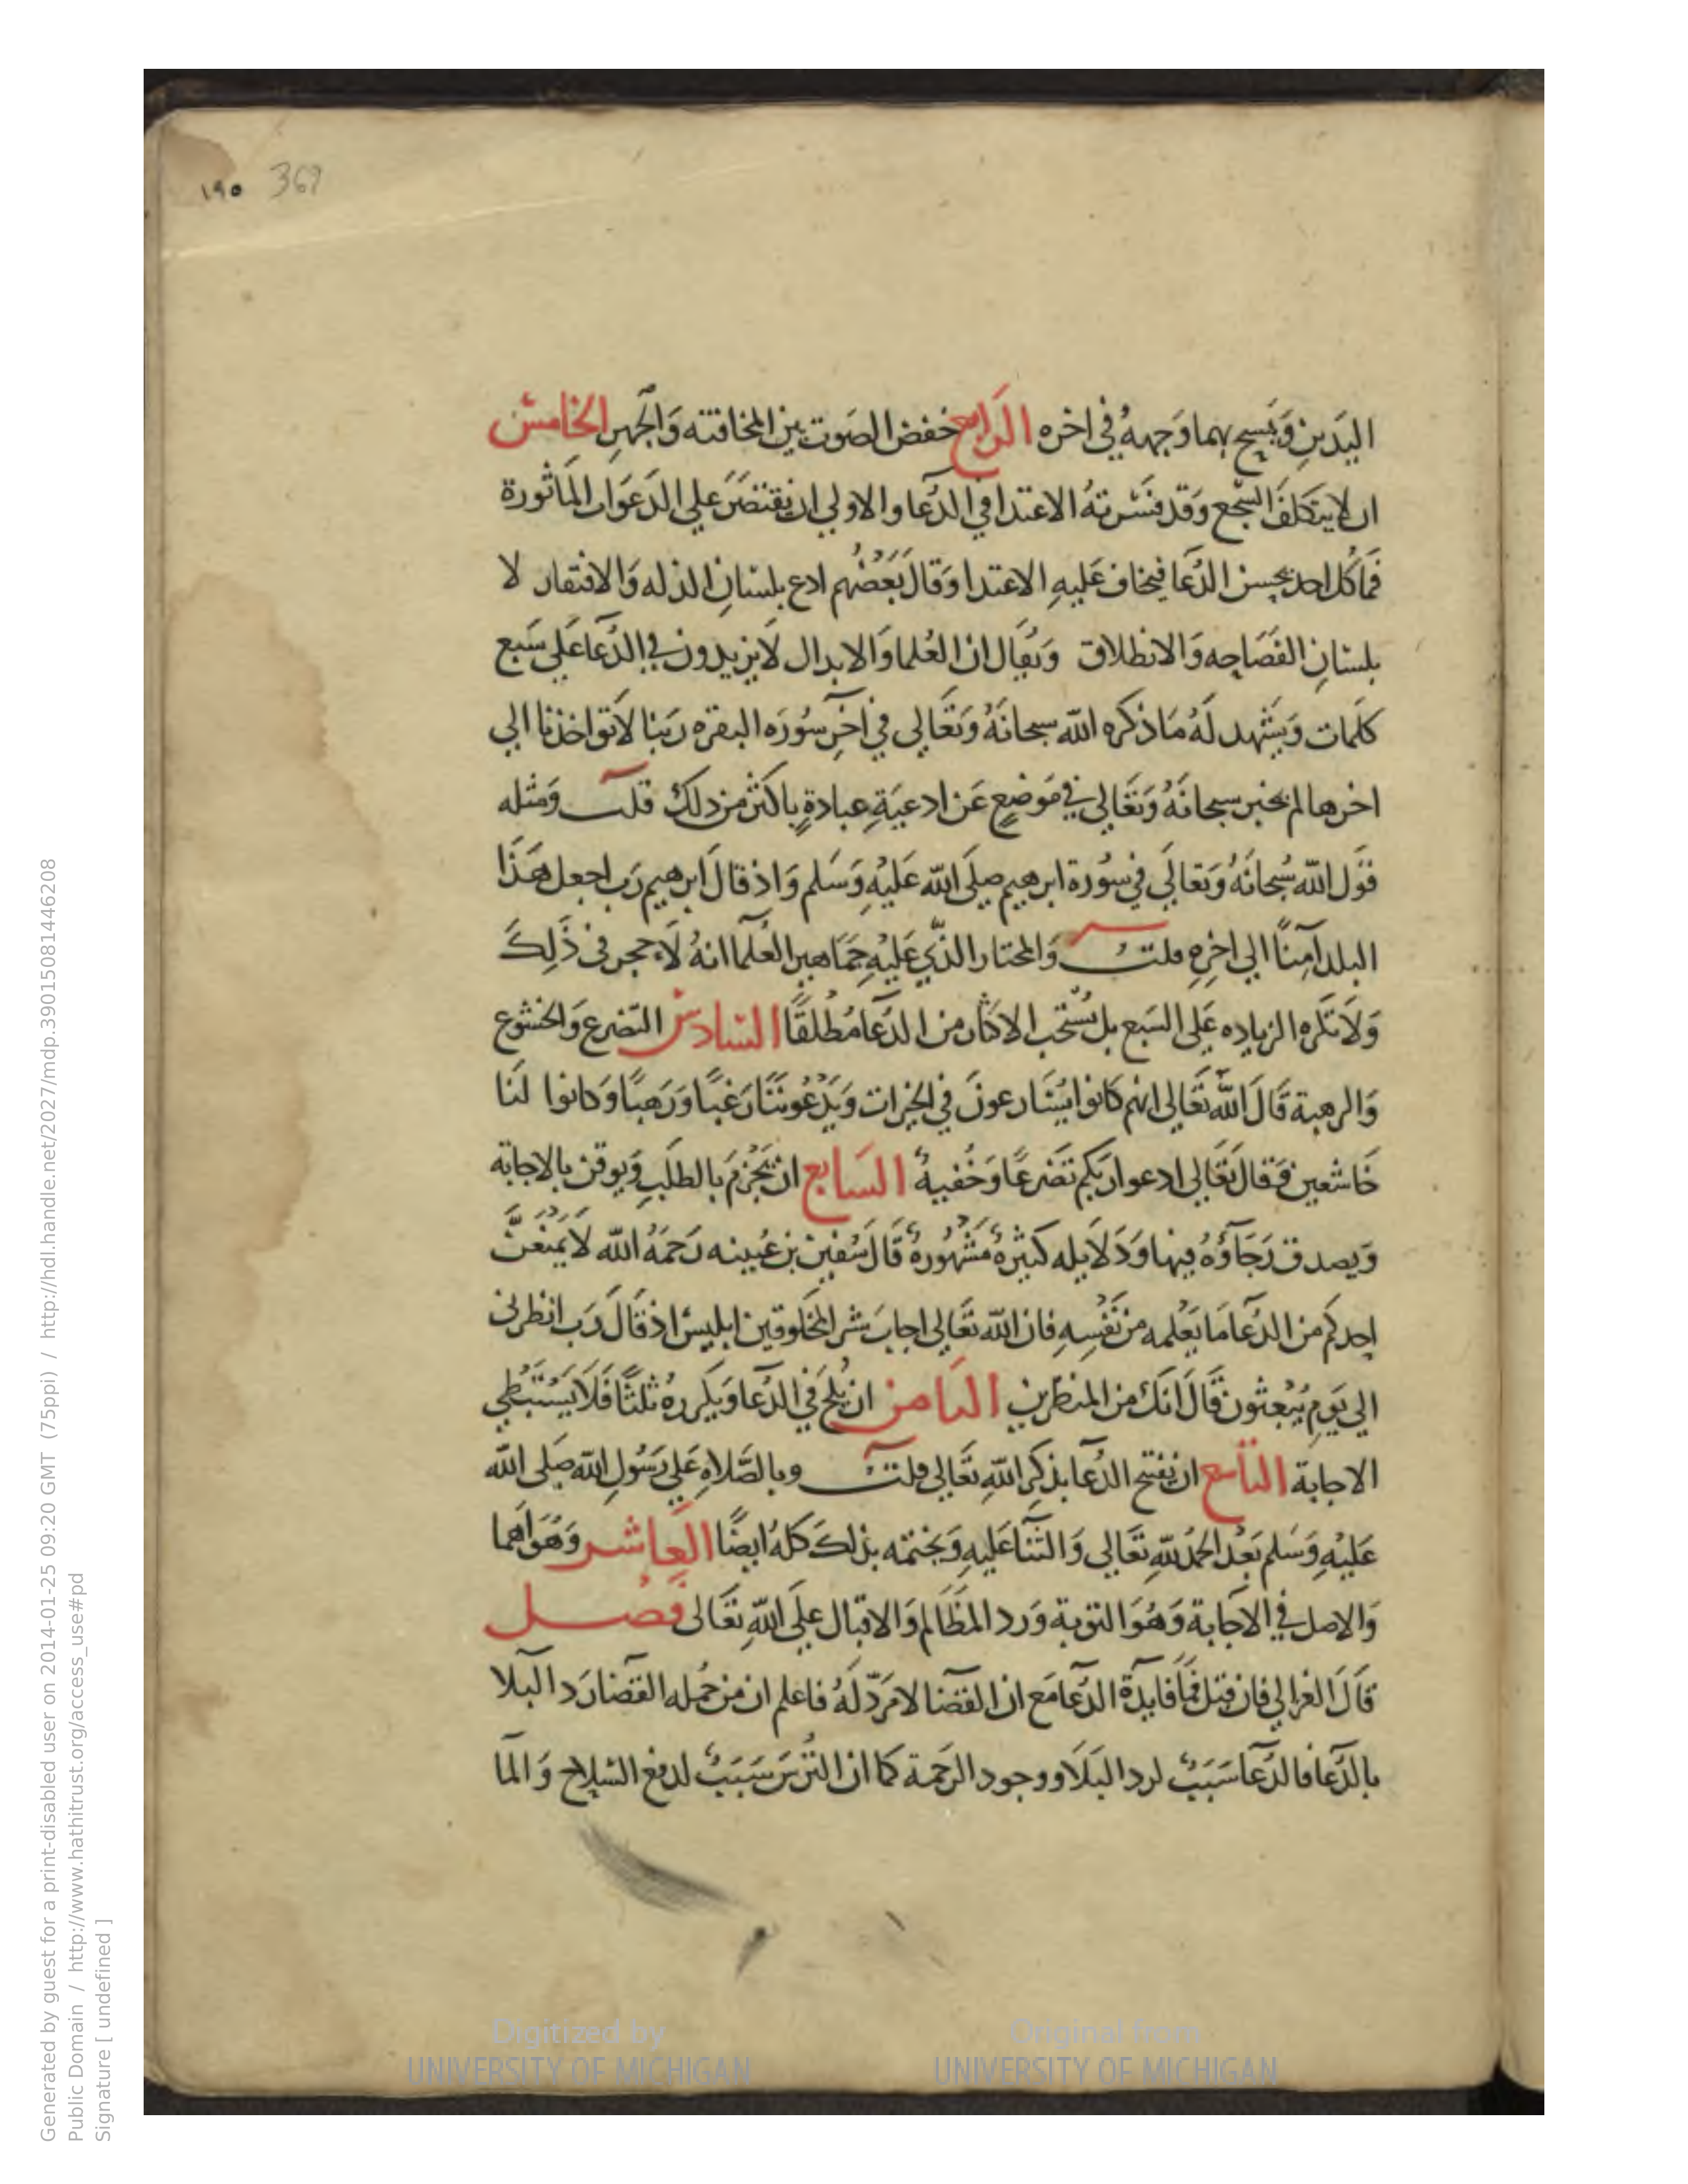 ١٩٥ 369
اليَدينِ وَيَمسح بهما وَجههُ في اخره الرَابع خفض الصَوت بين المخافته وَالجَهرِ الخامسُ
ان لا يتَكلفَ السَّجع وَقد فسّرتهُ الاعتدا في الدُعا والاولي ان يقتصَرَ علي الدَعَوات المَاثورة
فمَا كُل احد يحسن الدُّعَا فيخاف عَليهِ الاعتدا وَقالَ بَعَضُهم ادع بلسَانِ الذله وَالافتقار لا
بلسَانِ الفَصَاحِه وَالانطلاق وَيُقال ان العُلما وَالابدال لَا يزيدون في الدُّعَا عَلي سَبع
كلَمات وَيَشهد لَهُ مَا ذكره الله سبحانَهُ وَتعَالي في اخر سُورَه البقره ربنا لاَ تواخذنا الي
اخرها لم يخبر سبحانَهُ وَتعَالي في مَوضعٍ عَن ادعيَةِ عبادةٍ باكثر من ذلك قلت وَمثله
قوَل الله سُبحانَهُ وَتعالَي في سُورة ابرهيم صلي الله عَليْهِ وَسَلم وَاذ قالَ ابرهيم رَب اجعل هَذا
البلد آمِنًا الي اخرِهِ قلت وَالمختار الذّي عَليْهِ جمَاهير العُلمآ انهُ لاَ حجر في ذَلِكَ
وَلَا تكره الزياده عَلي السَبع بل يُستحَب الاكثار من الدُعآ مُطلَقًا السَادسُ التضرع وَالخشوع
وَالرهبة قَالَ اللهُ تعَالي انهم كَانوا يسَارعونَ في الخيرات وَيَدْعُونَنَا رَغبًا وَرَهبًا وَكانوا لنا
خَاشعين وَقالَ تعَالي ادعوا رَبكم تضَرعًا وَخُفيةً السَابع ان يَجْزمَ بالطلَبِ وَيوقن بالاجَابة
وَيصدق رَجَآؤُهُ فيها وَدَلاَيله كثيرهٌ مشَهُورهٌ قَالَ سُفين بن عُيينه رَحمَهُ الله لاَ يمْنَعَنَّ
احدكم من الدُعآ مَا يَعْلمه من نفْسِهِ فان الله تعَالي اجابَ شر المخلوقين ابليسَ اذ قَالَ رَب انظرني
الي يَومِ يُبْعثون قَالَ انكَ من المنظرين الثامن ان يلح في الدُعآ وَيكررهُ ثلثًا فَلاَ يَسْتَبْطي
الاجابة التاسع ان يفتتح الدعآ بذكرِ اللهِ تعَالي قلت وبالصَّلاهِ عَلي رَسُولِ الله صَلي الله
عَليْهِ وَسَلم بَعْد الحَمدُ للهِ تعَالي وَالثّنا عَليهِ وَيختمه بذلكَ كلهُ ايضًا العَاشر وَهُوَ اهما
وَالاصل في الاجَابة وَهُوَ التوبة وَرد المظالم وَالاقبال علَي اللهِ تعَالي فَصل
قَالَ الغزالي فان قيل فمَا فايدةُ الدُّعَا مَع ان القضا لا مَرَدّ لَهُ فاعلم ان من جمُله القضا رَد البلا
بالدُّعَا فالدُّعَا سَبَبٌ لرد البَلَا ووجود الرَحمة كما ان التُرسَ سَبَبٌ لدفع السلاح وَالمَا
Generated by guest for a print-disabled user on 2014-01-25 09:20 GMT (75ppi) / http://hdl.handle.net/2027/mdp.39015081446208
Public Domain / http://www.hathitrust.org/access_use#pd
Signature [ undefined ]
Digitized by
UNIVERSITY OF MICHIGAN
Original from
UNIVERSITY OF MICHIGAN